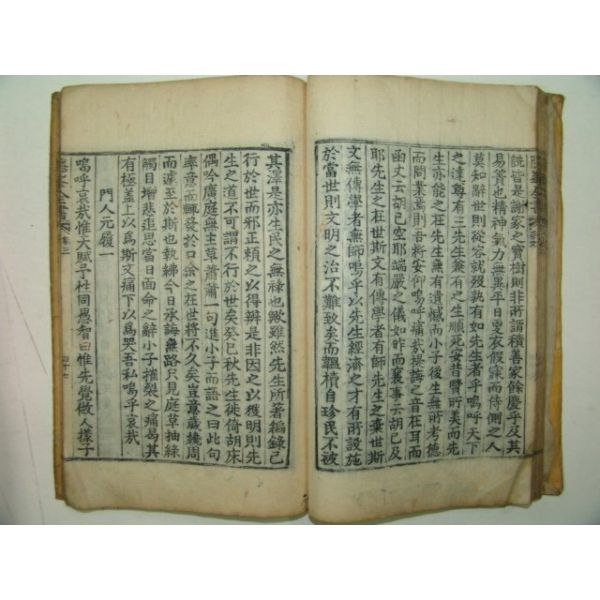 饒皆是謝家之寶樹則非所謂積善家餘慶乎及其
易簀也精神氣力無異平日更衣假寐而侍側之人
莫知辭世則從容就歿孰有如先生者乎嗚呼天下
之達尊有三先生兼有之生順死安昔賢所美而先
生亦能之在先生無有遺憾而小子後生無所考德
而問業焉則吾將安仰嗚呼痛哉揚誨之音在耳而
函丈云胡已空耶端嚴之儀如昨而襄事云胡已及
耶先生之在世斯文有傳學者有師先生之棄世斯
文無傳學者無師嗚呼以先生經濟之才有所設施
於當世則文明之治不難致矣而韞櫝自珍民不被
其澤是亦生民之無祿也歟雖然先生所著編錄已
行於世而邪正賴之以得辨是非因之以獲明則先
生之道不可謂不行於世矣癸巳秋先生徙倚胡床
偶吟廣庭無主草蕭蕭一句進小子而語之曰此句
率意而發於口余之在世將不久矣豈意歲纔周
而遽至於斯也執紼今日承誨無路只見庭草抽綠
觸目增悲追思當日面命之辭小子摧裂之痛曷其
有極蓋上以爲斯文痛下以爲哭吾私嗚呼哀哉
門人元履一
嗚呼哀哉惟天賦予杜同愚智曰惟先覺做人樣子
四十七